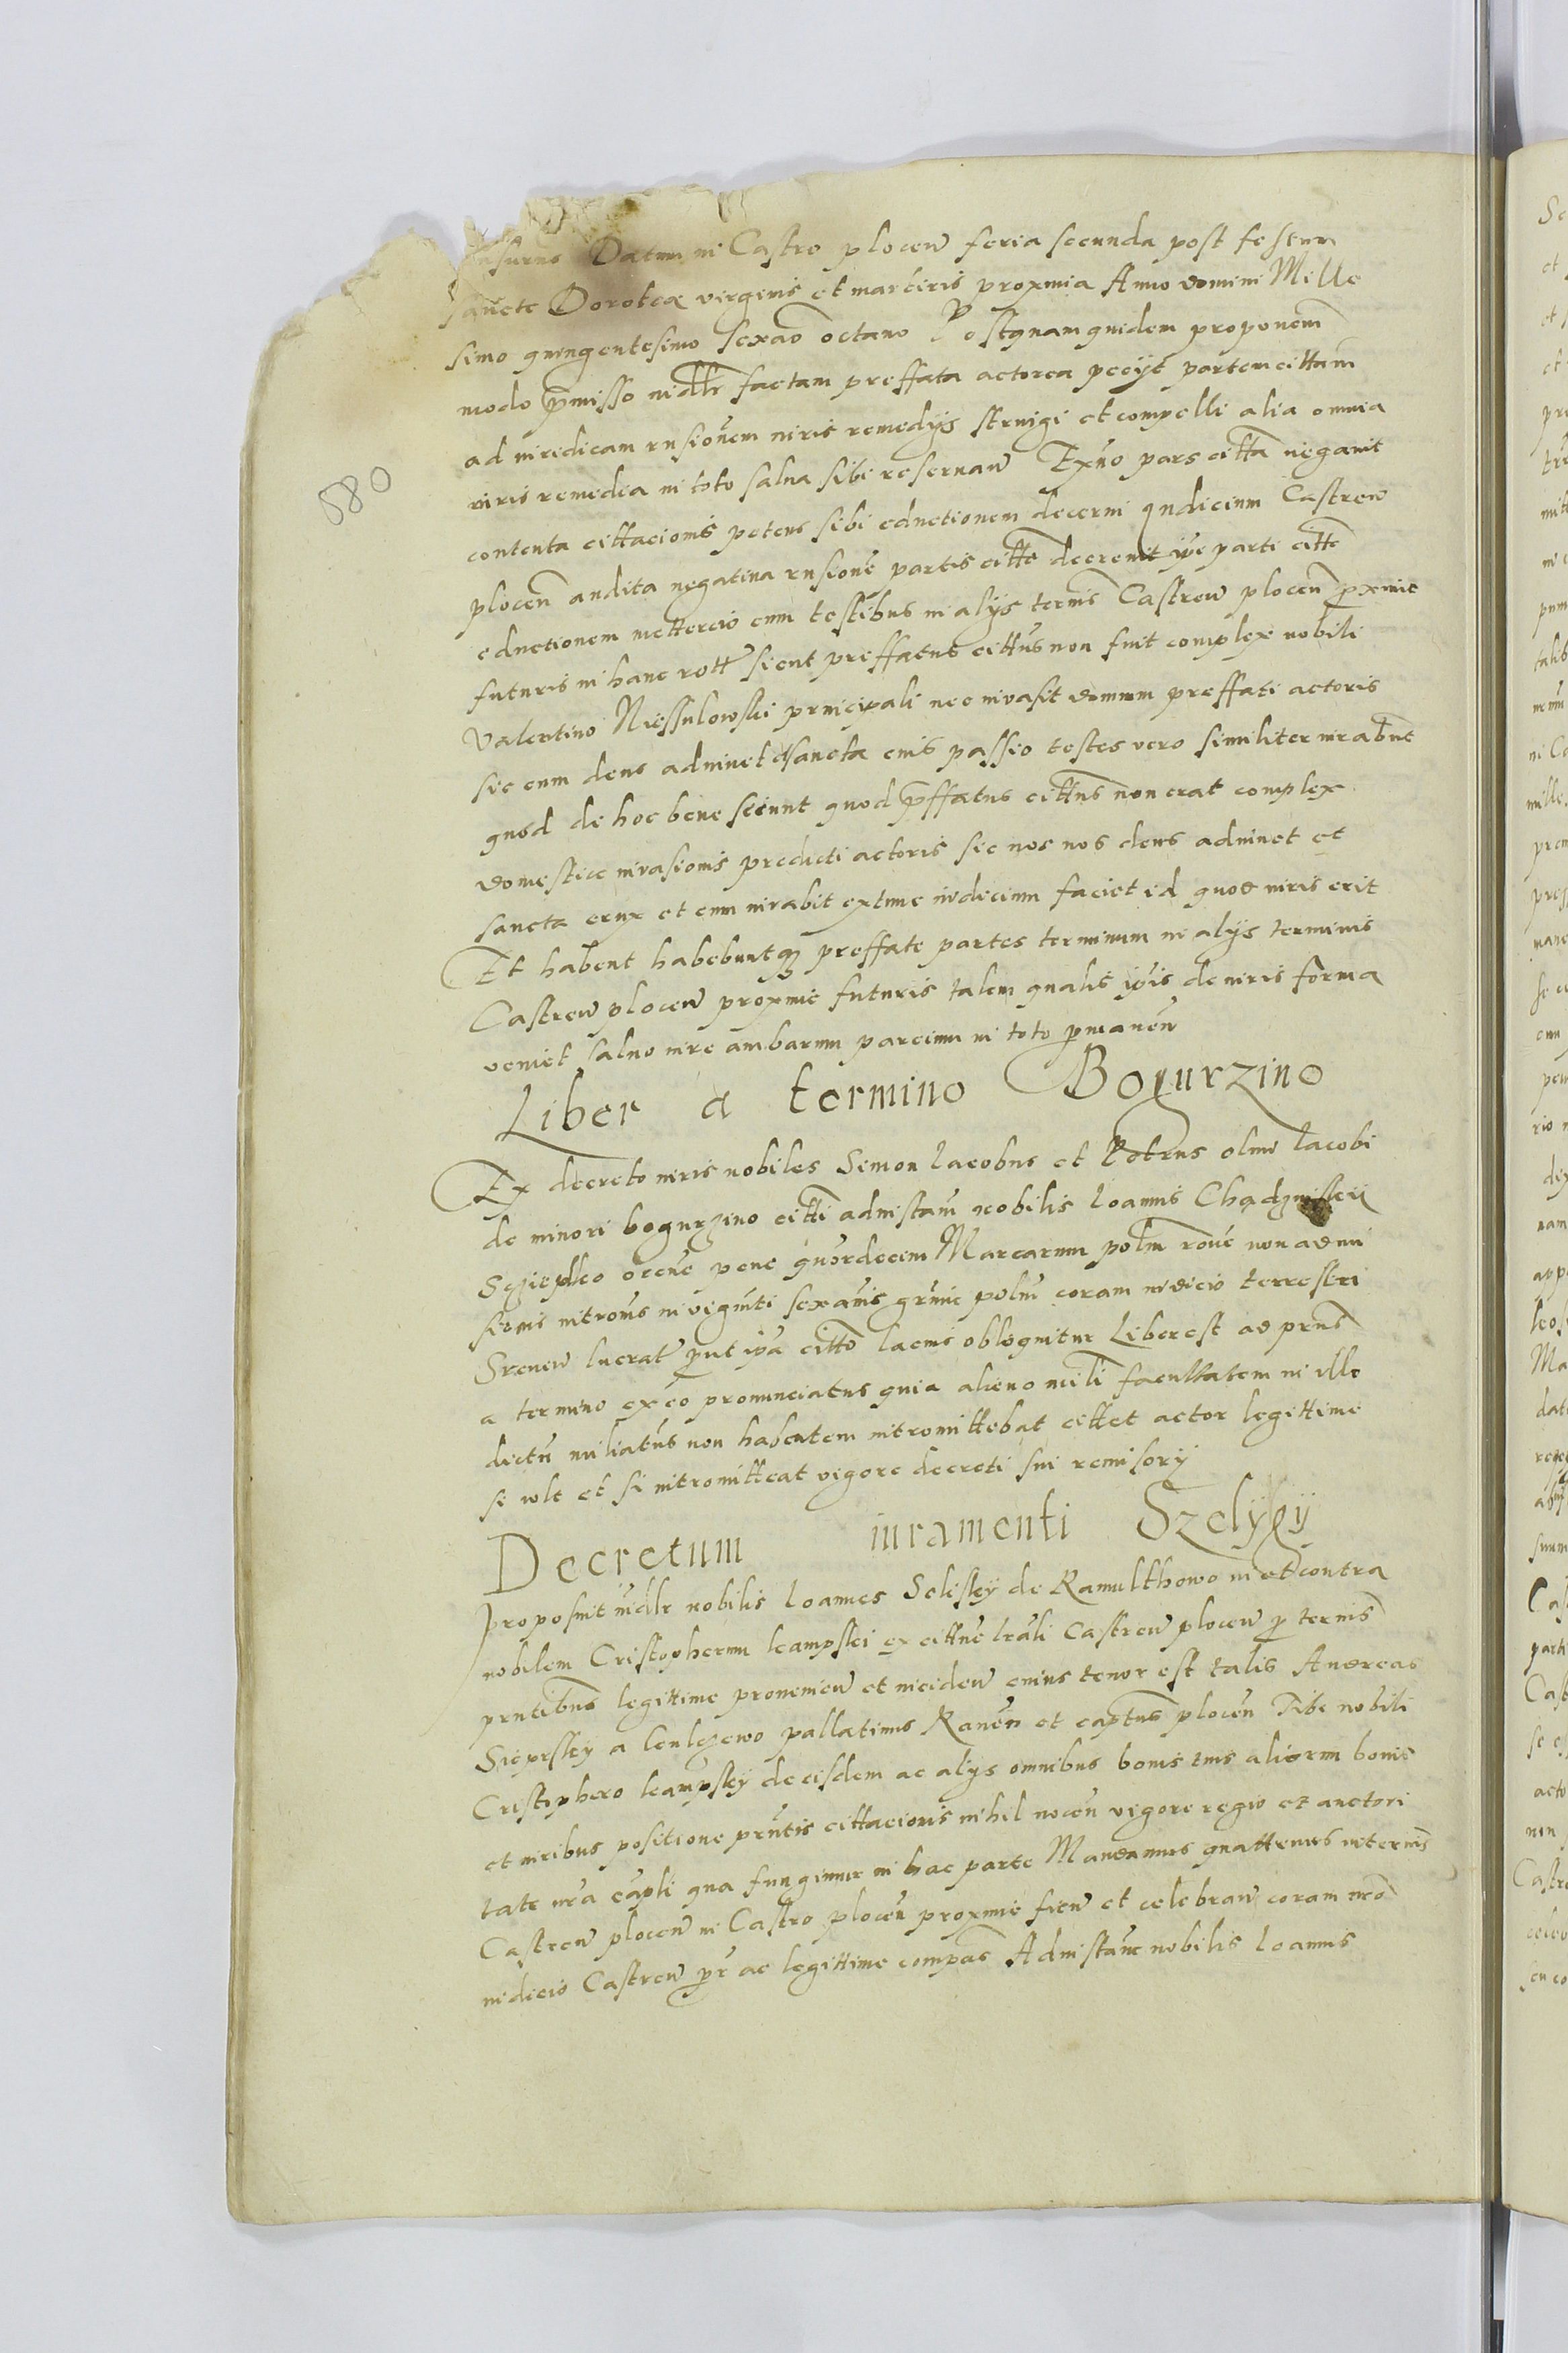 Datum in Castro plocen feria secunda post festum
sancte Dorothea virginis et martiris proxima Anno domini Mille
simo quingentesimo sexaō octavo Postquam quidem proponem
modo pmisso iudlr factam preffata actorea peciit partem cittam
ad iuridicam rnsionem iuris remedijs stringi et compelli alia omnia
iuris remedia in toto salva sibi reservan Exno pars citta negavit
contenta cittacionis petens sibi eductionem decerni Iudicium Castren
plocen audita negativa rnsione partis citte decrevit ipe parti citte
eductionem mettercio cum testibus in alijs termis Castren plocen pxime
futuris in hanc rott sicut preffatus cittus non fuit complex nobili
Valentino Niessulowski principali nec invasit domum preffati actoris
sic eum deus adiuvet et sancta eius passio testes vero similiter iurabunt
quod de hoc bene sciunt quod pffatus cittus non erat complex
domestice invasionis predicti actoris sic nos nos deus adiuvet et
sancta crux et cum iurabit extunc iudicium faciet id quod iuris erit
Et habent habebuntq preffate partes terminum in alijs terminis
Castren plocen proxime futuris talem qualis ipis de iuris forma
veniet salvo iure ambarum parcium in toto pmanen
Liber a termino Bogurzino
Ex decreto iuris nobiles Simon Iacobus et Petrus olim Iacobi
de minori bogurzino citti ad instam nobilis Ioannis
orcne pene quordecem Marcarum polm rone non admi
sionis intromis in viginti sexanis grune polm coram iudicio terrestri
Srenen lucrat put ipa citto lacius obloquitur Liber est ad pruns
a termino ex eo pronunciatus quia alieno mili facultatem in illo
dictu miliatus non habentem intromittebat cittet actor legittime
si wlt et si intromitteat vigore decreti sui remisorij
Decretum iuramenti Szelyky
Proposuit iudlr nobilis Ioannes Seliskÿ de Ramulthowo in et contra
nobilem Cristopherum leampski ex cittne lrali Castren plocen p termis
prntibus legittime provenien et inciden cuius tenor est talis Andreas
Sieprsky a lenlczewo pallatinus Raven et captus plocen Tibi nobili
Cristophero leampskÿ de eisdem ac alijs omnibus bonis tuis aliorum bonis
et iuribus positione prntis cittacionis nihil nocen vigore regio et auctori
tate nra capli qua fungimur in hac parte Mandamus quattenus in termis
Castren plocen in Castro plocen proxime fien et celebran coram nro
iudicio Castren pr ac legittime compas Ad instanc nobilis Ioannis
880